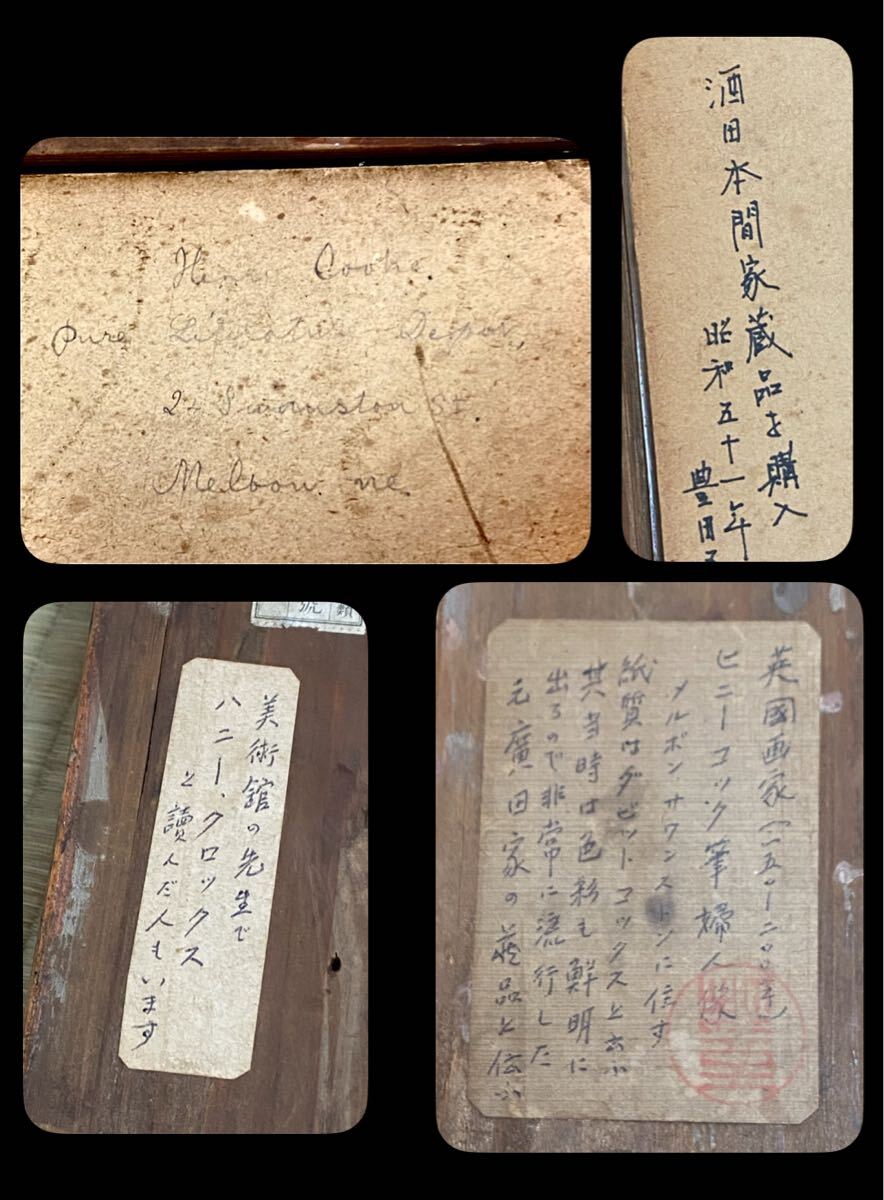 Henry Cooke
Pure Literature Depot,
2+ Swanston St.
Melbourne
酒田本間家蔵品を購入
昭和五十一年
豊田
号 類
美術舘の先生で
ハニー、クロックス
と讀んだ人もいます
英國画家(一五〇—二〇〇年)
ヒニーコック筆婦人像
メルボンサワンストンに住す
紙質はダビットコックスと云ふ
其当時は色彩も鮮明に
出るので非常に流行した
元廣田家の蔵品と伝ふ